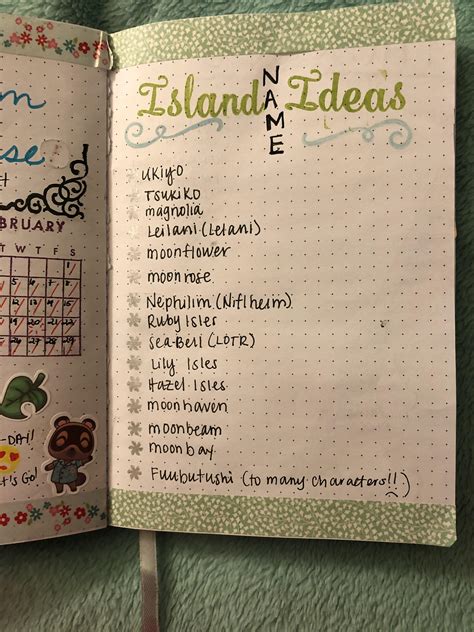 Island NAME Ideas
Ukiyo
Tsukiko
magnolia
Leilani (Lelani)
moonflower
moonrose
Nephilim (Niflheim)
Ruby Isles
Sea-Bell (LOTR)
Lily Isles
Hazel Isles
moonhaven
moonbeam
moonbay
Fuubutushi (to many characters!!)
BRUARY
T W T F S
-DAY!
t's Go!